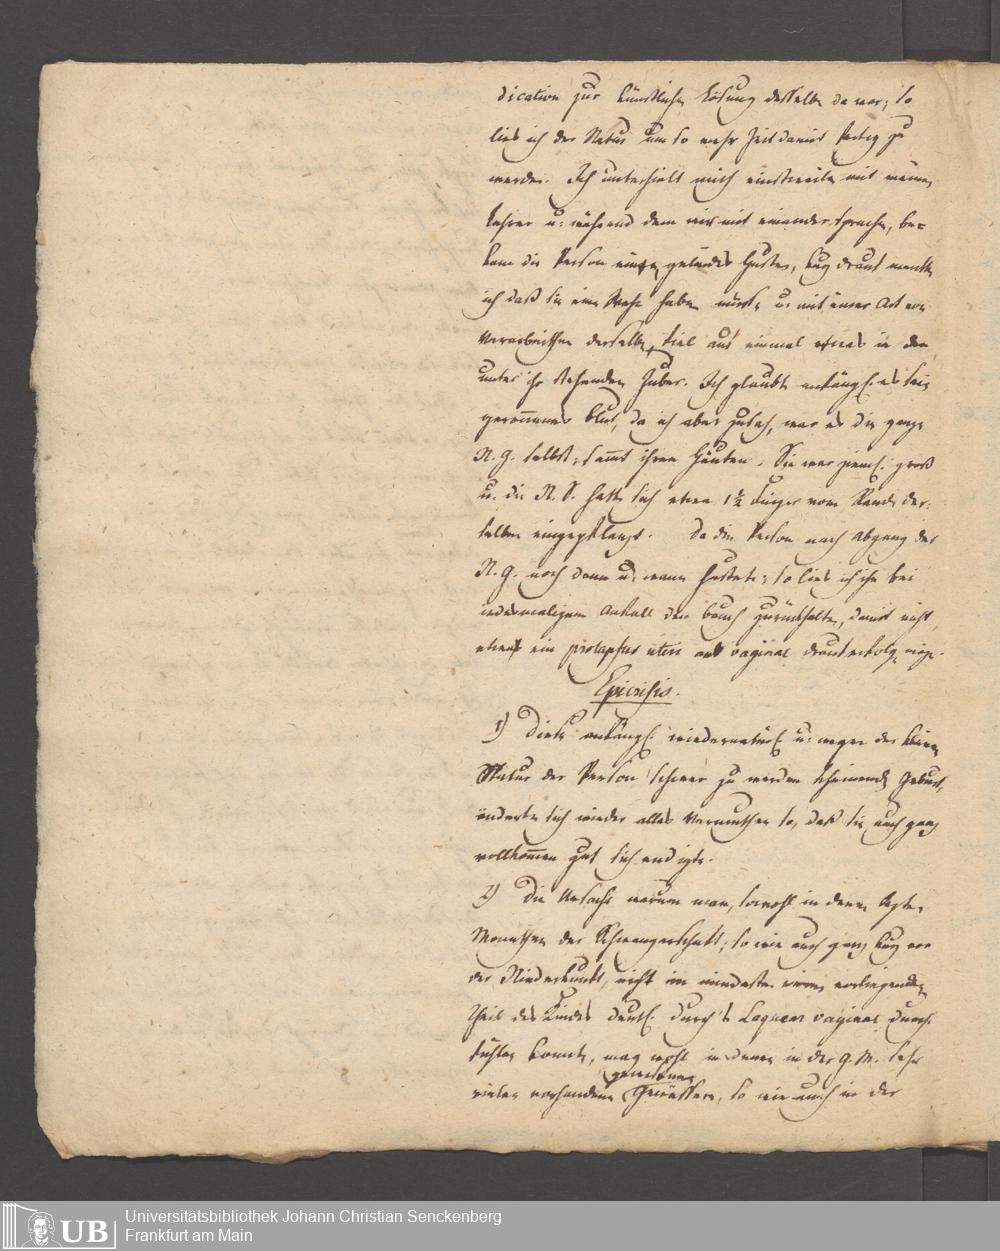 dication zur künstlichen Lösung desselben da war; so
lies ich der Natur um so mehr Zeit damit fertig zu
werden. Ich unterhielt mich einstweilen mit meinem
Lehrer u: während dem wir mit einander sprachen, be=
kam die Person einen gelinden Husten, kurz drauf merkte
ich daß sie eine Wehe haben müsste u: mit einer Art von
Verarbeithen derselben, fiel auf einmal etwas in den
unter ihr stehenden Zuber. Ich glaubte anfängl: es sei
geronnenes Blut, da ich aber zusah, war es die ganze
N. G. selbst, samt ihren Häuten. Sie war ziemL: groß
u. die N. S. hatte sich etwa 1½ Finger vom Rande der=
selben eingepflanzt. Da die Person nach Abgang der
N. G. noch dann u: wann hustete; so lies ich ihr bei
jedesmaligem Anfall den Bauch zurückhalten, damit nicht
etwa ein prolapsus uteri aut vaginae drauf erfolgen möge.
Epicrisis.
1) Diese anfängl: wiedernatürl: u: wegen der kleinen
Statur der Person schwer zu werden scheinende Geburt,
änderte sich wieder alles Vermuthen so, daß sie auch ganz
vollkommen gut sich endigte.
2) Die Ursache warum man, sowohl in denen letzten
Monathen der Schwangerschaft, so wie auch ganz kurz vor
der Niederkunft, nicht im mindesten einen vorliegenden
Theil des Kindes deutl: durch's Laquear vaginae durch=
fühlen konnte, mag wohl in denen in der G. M. sehr
vielen vorhandenen Gewässern, so wie auch in der
gewesenen
Universitätsbibliothek Johann Christian Senckenberg
Frankfurt am Main
UB